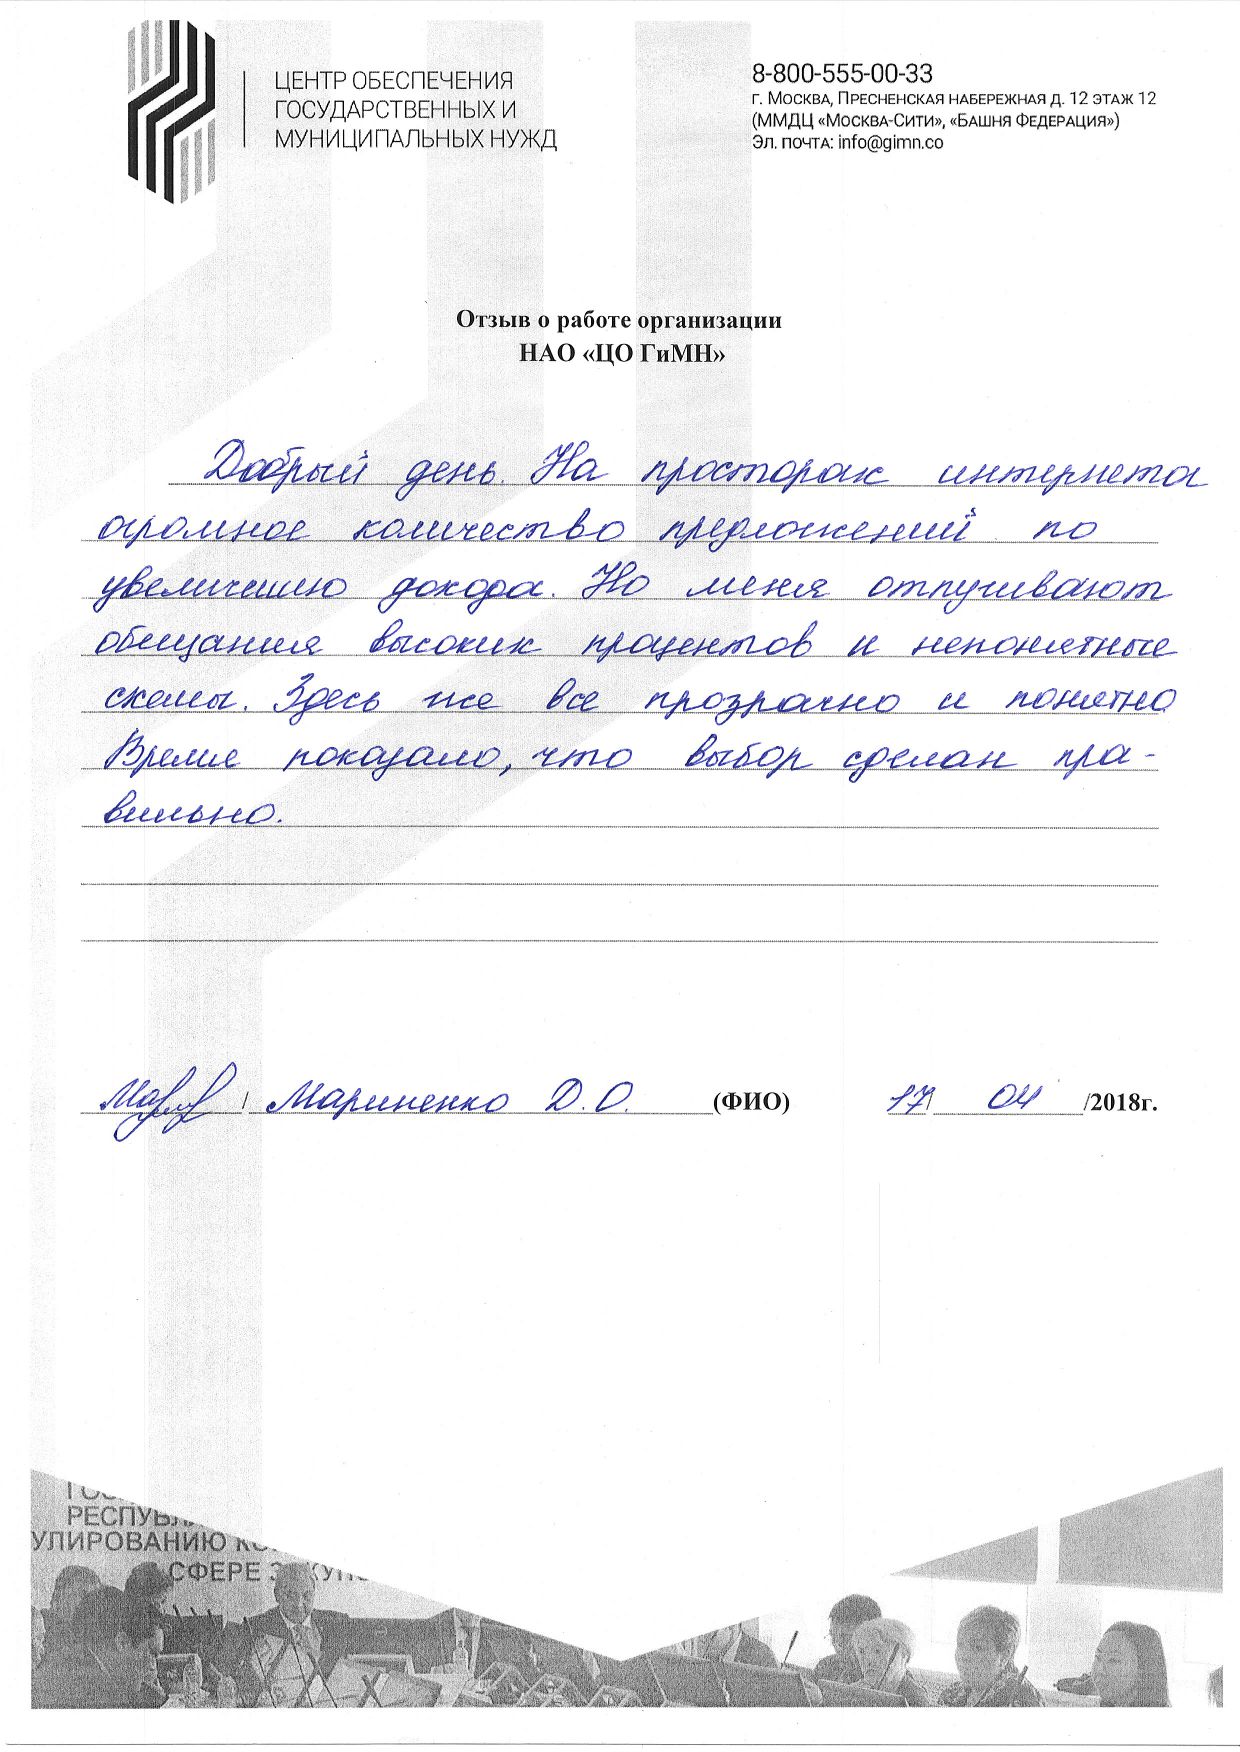 ЦЕНТР ОБЕСПЕЧЕНИЯ
ГОСУДАРСТВЕННЫХ И
МУНИЦИПАЛЬНЫХ НУЖД
8-800-555-00-33
г. Москва, Пресненская набережная д. 12 этаж 12
(ММДЦ «Москва-Сити», «Башня Федерация»)
Эл. почта: info@gimn.co
Отзыв о работе организации
НАО «ЦО ГиМН»
Добрый день. На просторах интернета
огромное количество предложений по
увеличению дохода. Но меня отпугивают
обещания высоких процентов и непонятные
схемы. Здесь же все прозрачно и понятно
Время показало, что выбор сделан пра-
вильно.
/ Мариненко Д.О. (ФИО) 17/ 04 /2018г.
УЛИРОВАНИЮ
СФЕРЕ